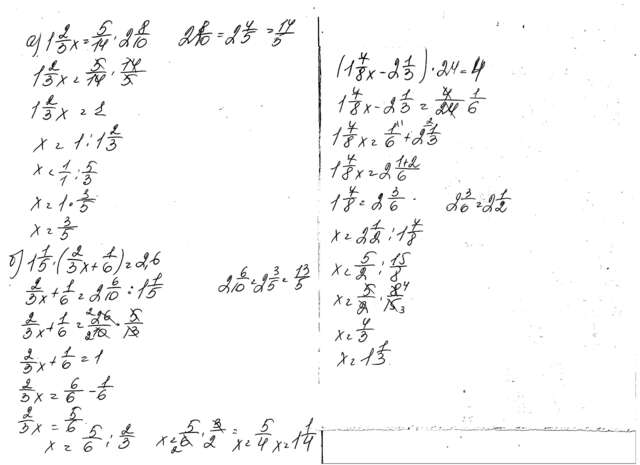 а) 1 2/3 x = 5/14 · 2 8/10    2 8/10 = 2 4/5 = 14/5
1 2/3 x = 5/14 · 14/5
1 2/3 x = 1
x = 1 : 1 2/3
x = 1/1 : 5/3
x = 1 · 3/5
x = 3/5
б) 1 1/5 · (2/3 x + 1/6) = 2,6
2/3 x + 1/6 = 2 6/10 : 1 1/5    2 6/10 = 2 3/5 = 13/5
2/3 x + 1/6 = 26/10 · 5/13
2/3 x + 1/6 = 1
2/3 x = 6/6 - 1/6
2/3 x = 5/6
x = 5/6 : 2/3    x = 5/6 · 3/2 =    x = 5/4    x = 1 1/4
(1 7/8 x - 2 1/3) · 24 = 4
1 7/8 x - 2 1/3 = 4/24 1/6
1 7/8 x = 1/6 + 2 1/3
1 7/8 x = 2 1+2/6
1 7/8 = 2 3/6 ·    2 3/6 = 2 1/2
x = 2 1/2 : 1 7/8
x = 5/2 : 15/8
x = 5/2 · 8/15
x = 4/3
x = 1 1/3